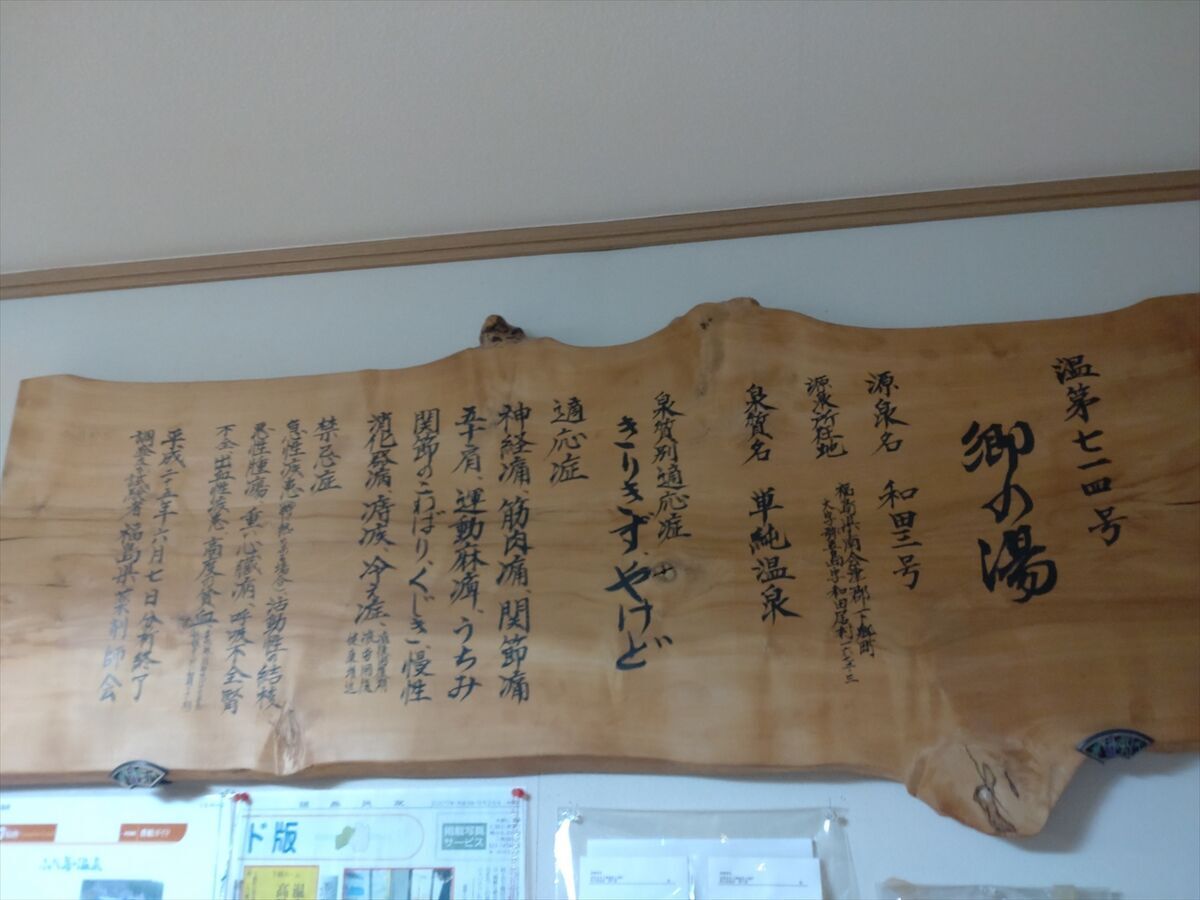 温第七一四号
郷の湯
源泉名 和田三号
源泉所在地
福島県南会津郡下郷町
泉質名 単純温泉
泉質別適応症
きりきず、やけど
適応症
神経痛、筋肉痛、関節痛
五十肩、運動麻痺、うちみ
関節のこわばり、くじき、慢性
消化器病、痔疾、冷え症、
病後回復期
疲労回復
健康増進
禁忌症
急性疾患(特に熱のある場合)活動性の結核
悪性腫瘍、重い心臓病、呼吸不全、腎
不全、出血性疾患、高度の貧血
平成二五年六月七日分析終了
調査及び試験者 福島県薬剤師会
ド版
掲載写真
サービス
高温